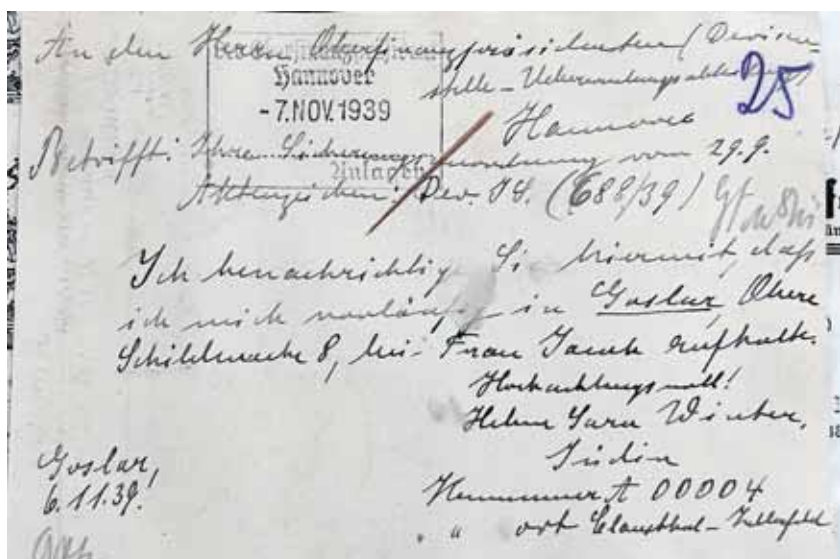 An den Herrn Oberfinanzpräsidenten (Devisen-
stelle - Ueberwachungsabteilung)
Hannover
Hannover
-7. NOV. 1939
Anlagen
25
Betrifft: Ihre Sicherungsanordnung vom 29.9.
Aktenzeichen: Dev. (688/39)
Ich benachrichtige Sie hiermit, daß
ich mich vorläufig in Goslar, Obere
Schildwache 8, bei Frau Jacob aufhalte.
Hochachtungsvoll!
Helene Sara Winter,
Jüdin
Kennummer A 00004
" ort Clausthal-Zellerfeld
Goslar,
6.11.39.